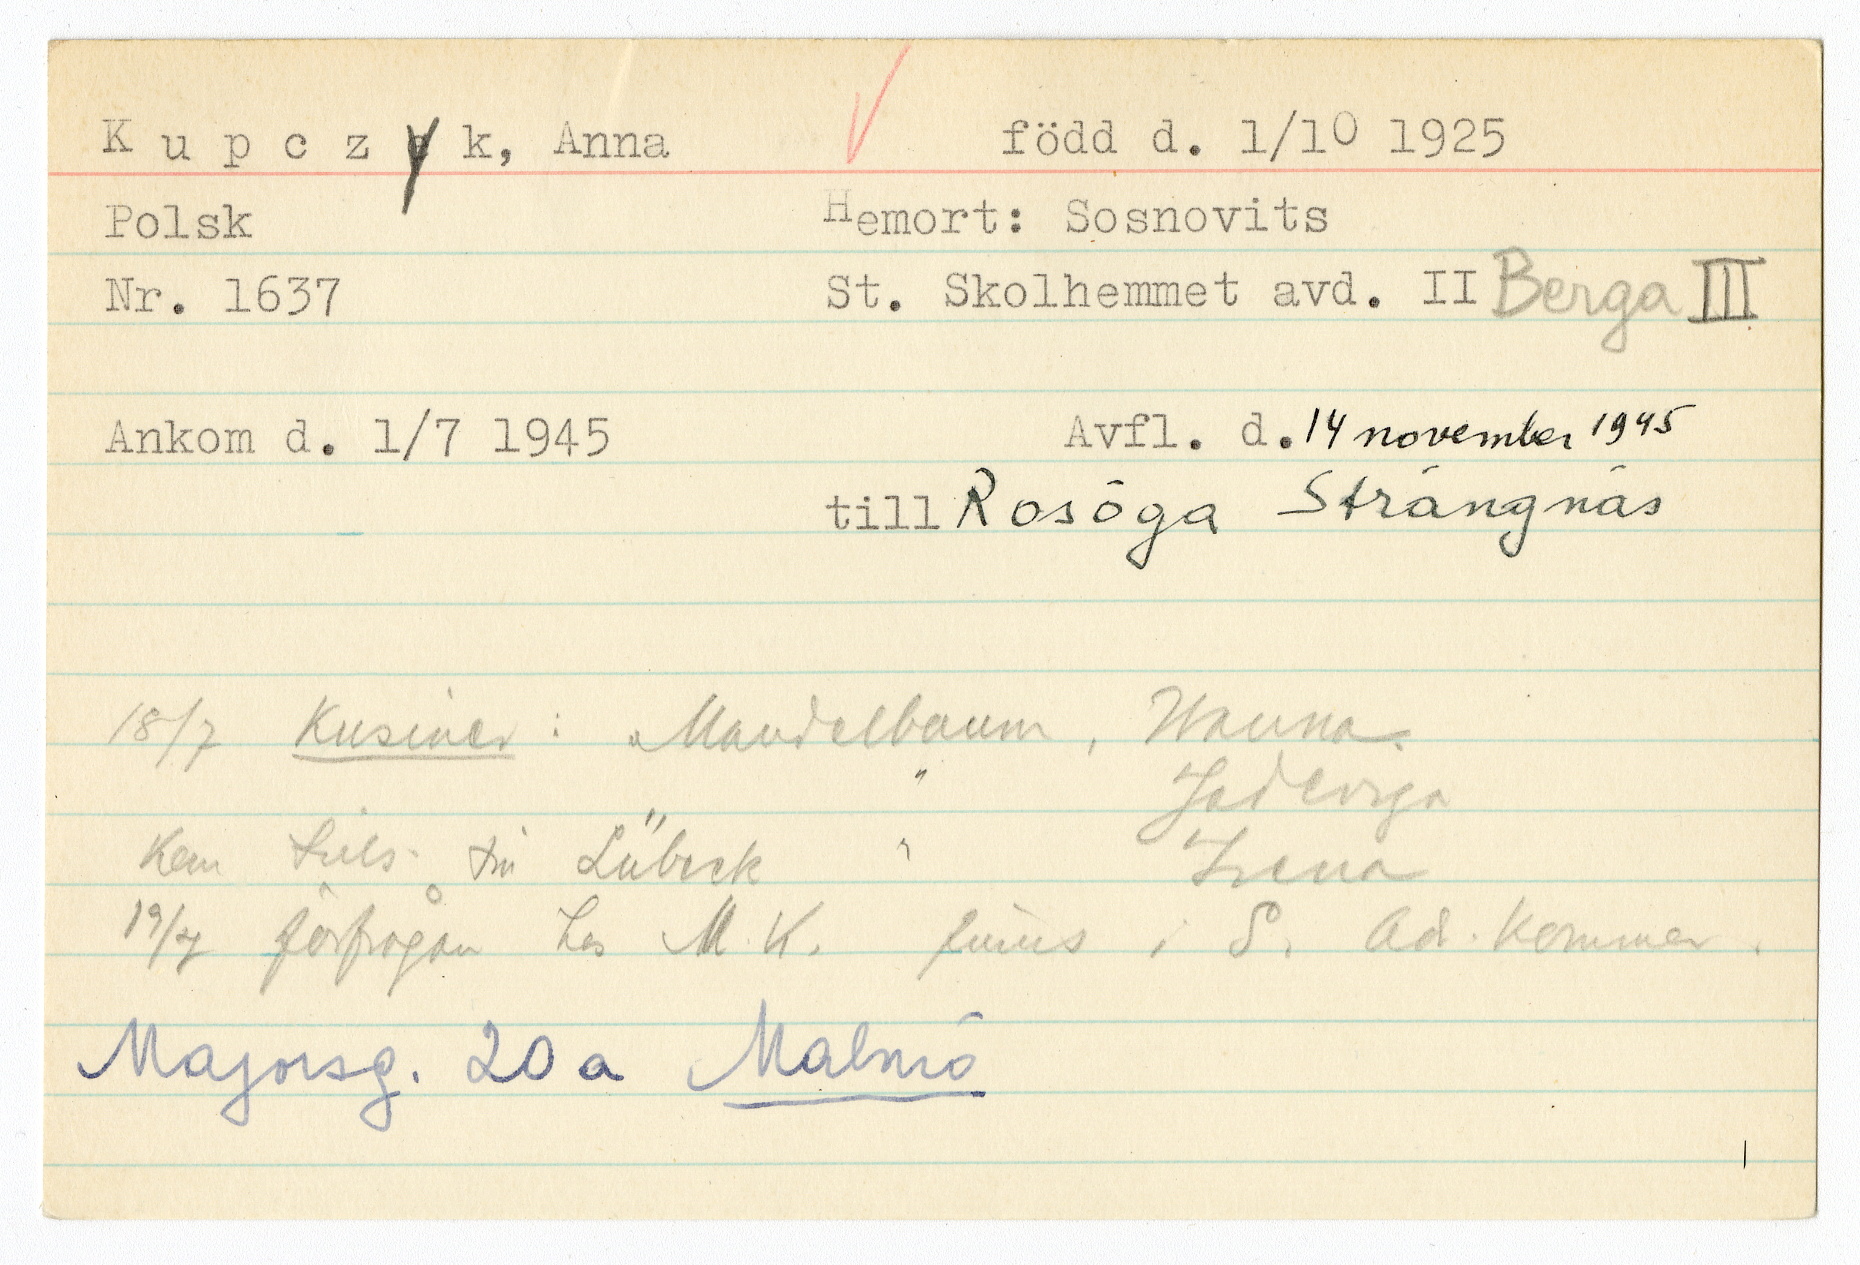 Kupczyk, Anna född d. 1/10 1925
Polsk Hemort: Sosnovits
Nr. 1637 St. Skolhemmet avd. II Berga III
Ankom d. 1/7 1945 Avfl. d. 14 november 1945
till Rosöga Strängnäs
18/7 Kusiner: Mandelbaum, Hanna.
" Jadwiga
Kom tills. till Lübeck " Irena
19/7 förfrågan hos M.K. finns i S. Ad. kommer.
Majorsg. 20a Malmö